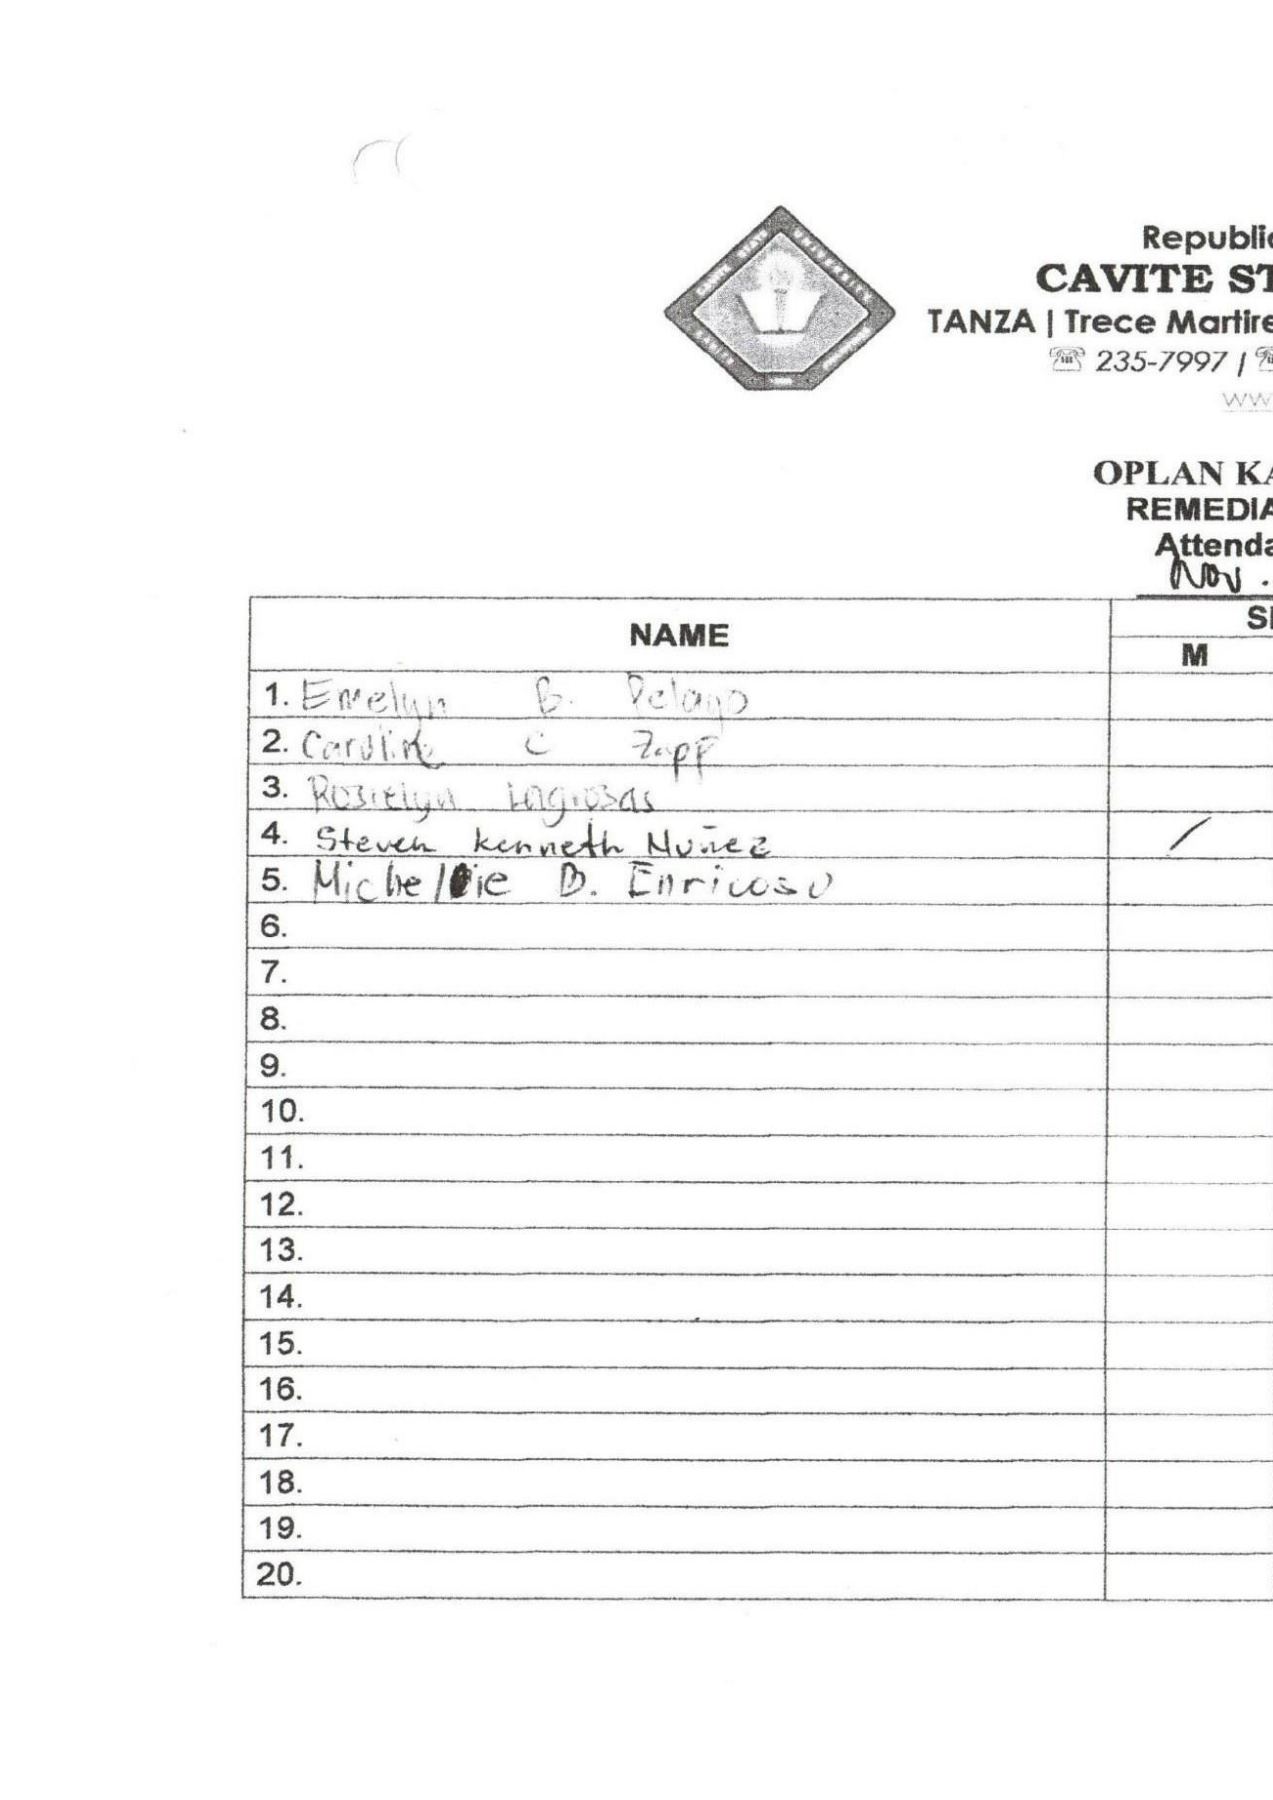 Republic
CAVITE ST
TANZA | Trece Martire
☏ 235-7997 | ☏
ww
OPLAN KA
REMEDIA
Attenda
Nov.
NAME
M
1. Emelyn B. Pelayo
2. Caroline C Zapp
3. Rosielyn
4. Steven Kenneth Nuñez
5. B. Enricoso
6.
7.
8.
9.
10.
11.
12.
13.
14.
15.
16.
17.
18.
19.
20.